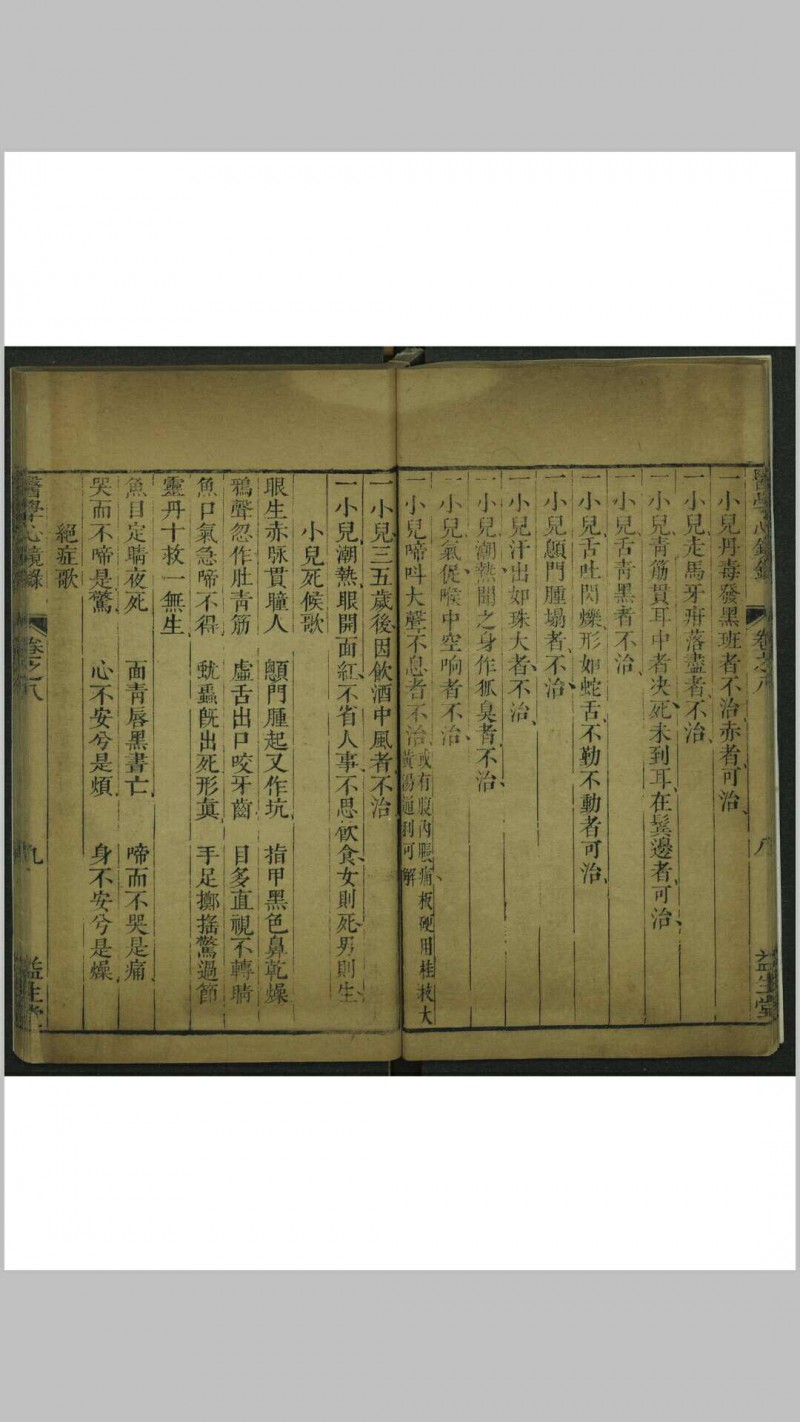 醫學心鏡錄 卷之八 八 益生堂
一小兒丹毒發黑班者不治赤者可治
一小兒走馬牙疳落盡者不治
一小兒青筋貫耳中者决死未到耳在鬂邊者可治
一小兒舌青黑者不治
一小兒舌吐閃爍形如蛇舌不勤不動者可治
一小兒顖門腫塌者不治
一小兒汗出如珠大者不治
一小兒潮熱聞之身作狐臭者不治
一小兒氣促喉中空响者不治
一小兒啼呌大聲不息者不治 或有腹內脹痛板硬用桂枝大
黃湯 到可解
一小兒三五歲後因飲酒中風者不治
一小兒潮熱眼開面紅不省人事不思飲食女則死男則生
小兒死候歌
眼生赤脉貫瞳人 顖門腫起又作坑 指甲黑色鼻乾燥
鴉聲忽作肚青筋 虛舌出口咬牙齒 目多直視不轉睛
魚口氣急啼不得 蚘蟲旣出死形眞 手足擲搖驚過節
靈丹十救一無生
魚目定睛夜死 面青唇黑晝亡 啼而不哭是痛
哭而不啼是驚 心不安兮是煩 身不安兮是燥
絕症歌
醫學心鏡錄 卷之八 九 益生堂